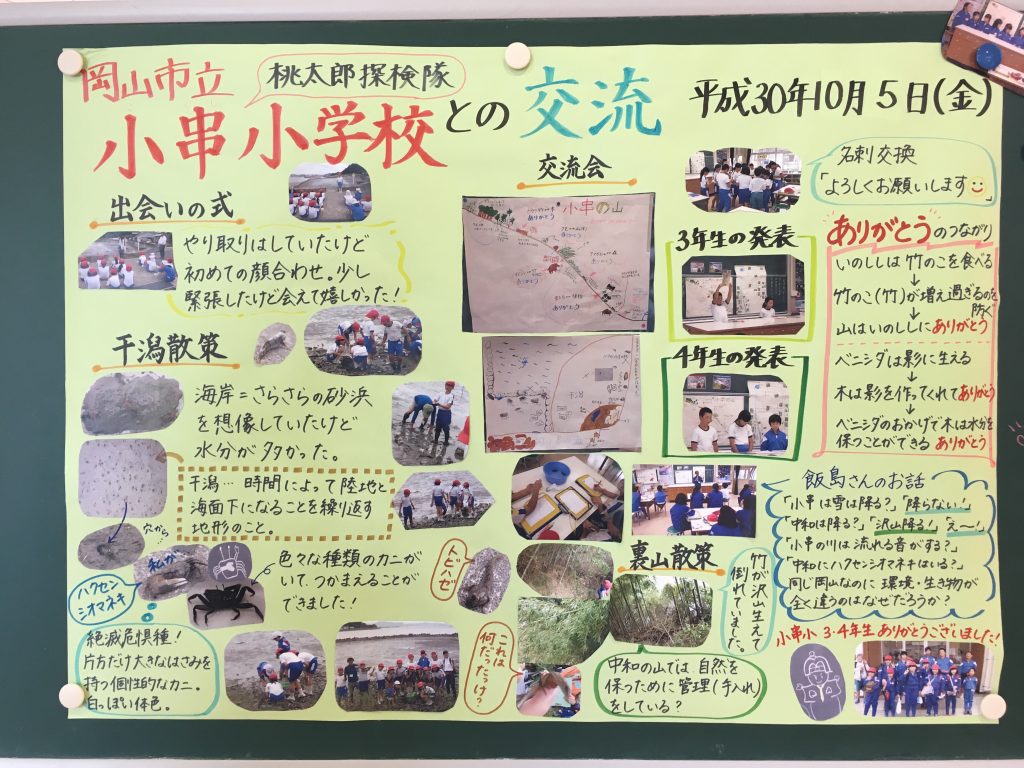 岡山市立
桃太郎探検隊
小串小学校との交流
平成30年10月5日(金)
出会いの式
やり取りはしていたけど
初めての顔合わせ。少し
緊張したけど会えて嬉しかった!
干潟散策
海岸=さらさらの砂浜
を想像していたけど
水分が多かった。
干潟…時間によって陸地と
海面下になることを繰り返す
地形のこと。
穴から
私が
ハクセン
シオマネキ
色々な種類のカニが
いて、つかまえることが
できました!
絶滅危惧種!
片方だけ大きなはさみを
持つ個性的なカニ。
白っぽい体色。
トビハゼ
これは
何だったっけ?
交流会
小串の山
ありがとう
干潟
名刺交換
「よろしくお願いします
3年生の発表
4年生の発表
ありがとうのつながり
いのししは竹のこを食べる
↓
竹のこ(竹)が増え過ぎるのを
防ぐ
↓
山はいのししにありがとう
ベニシダは影に生える
↓
木は影を作ってくれてありがとう
↓
ベニシダのおかげで木は水分を
保つことができる ありがとう
飯島さんのお話
「小串は雪は降る?」「降らない!」
「中和は降る?」「沢山降る!」「え〜!」
「小串の川は流れる音がする?」
「中和にハクセンシオマネキはいる?」
同じ岡山なのに環境・生き物が
全く違うのはなぜだろうか?
裏山散策
竹が沢山生えて
倒れていました。
中和の山では、自然を
保つために管理(手入れ)
をしている?
小串小3・4年生ありがとうございました!